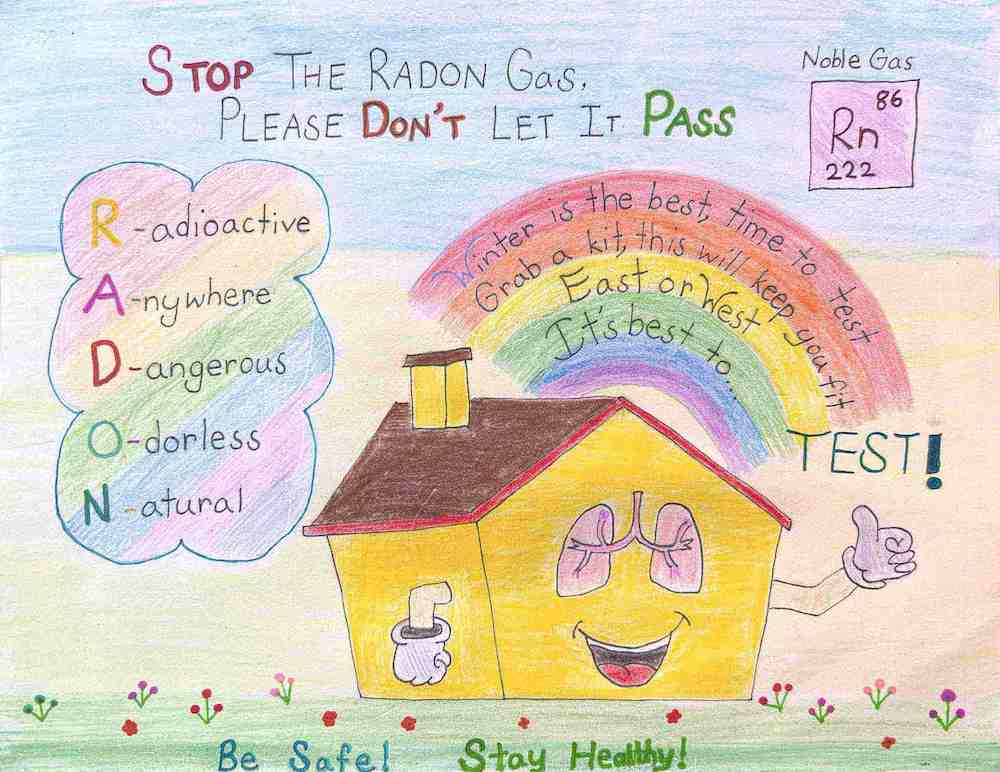 STOP THE RADON Gas.
PLEASE DON'T LET IT PASS
Noble Gas
86
Rn
222
R-adioactive
A-nywhere
D-angerous
O-dorless
N-atural
Winter is the best, time to test
Grab a kit, this will keep you fit
East or West,
It's best to...
TEST!
Be Safe! Stay Healthy!